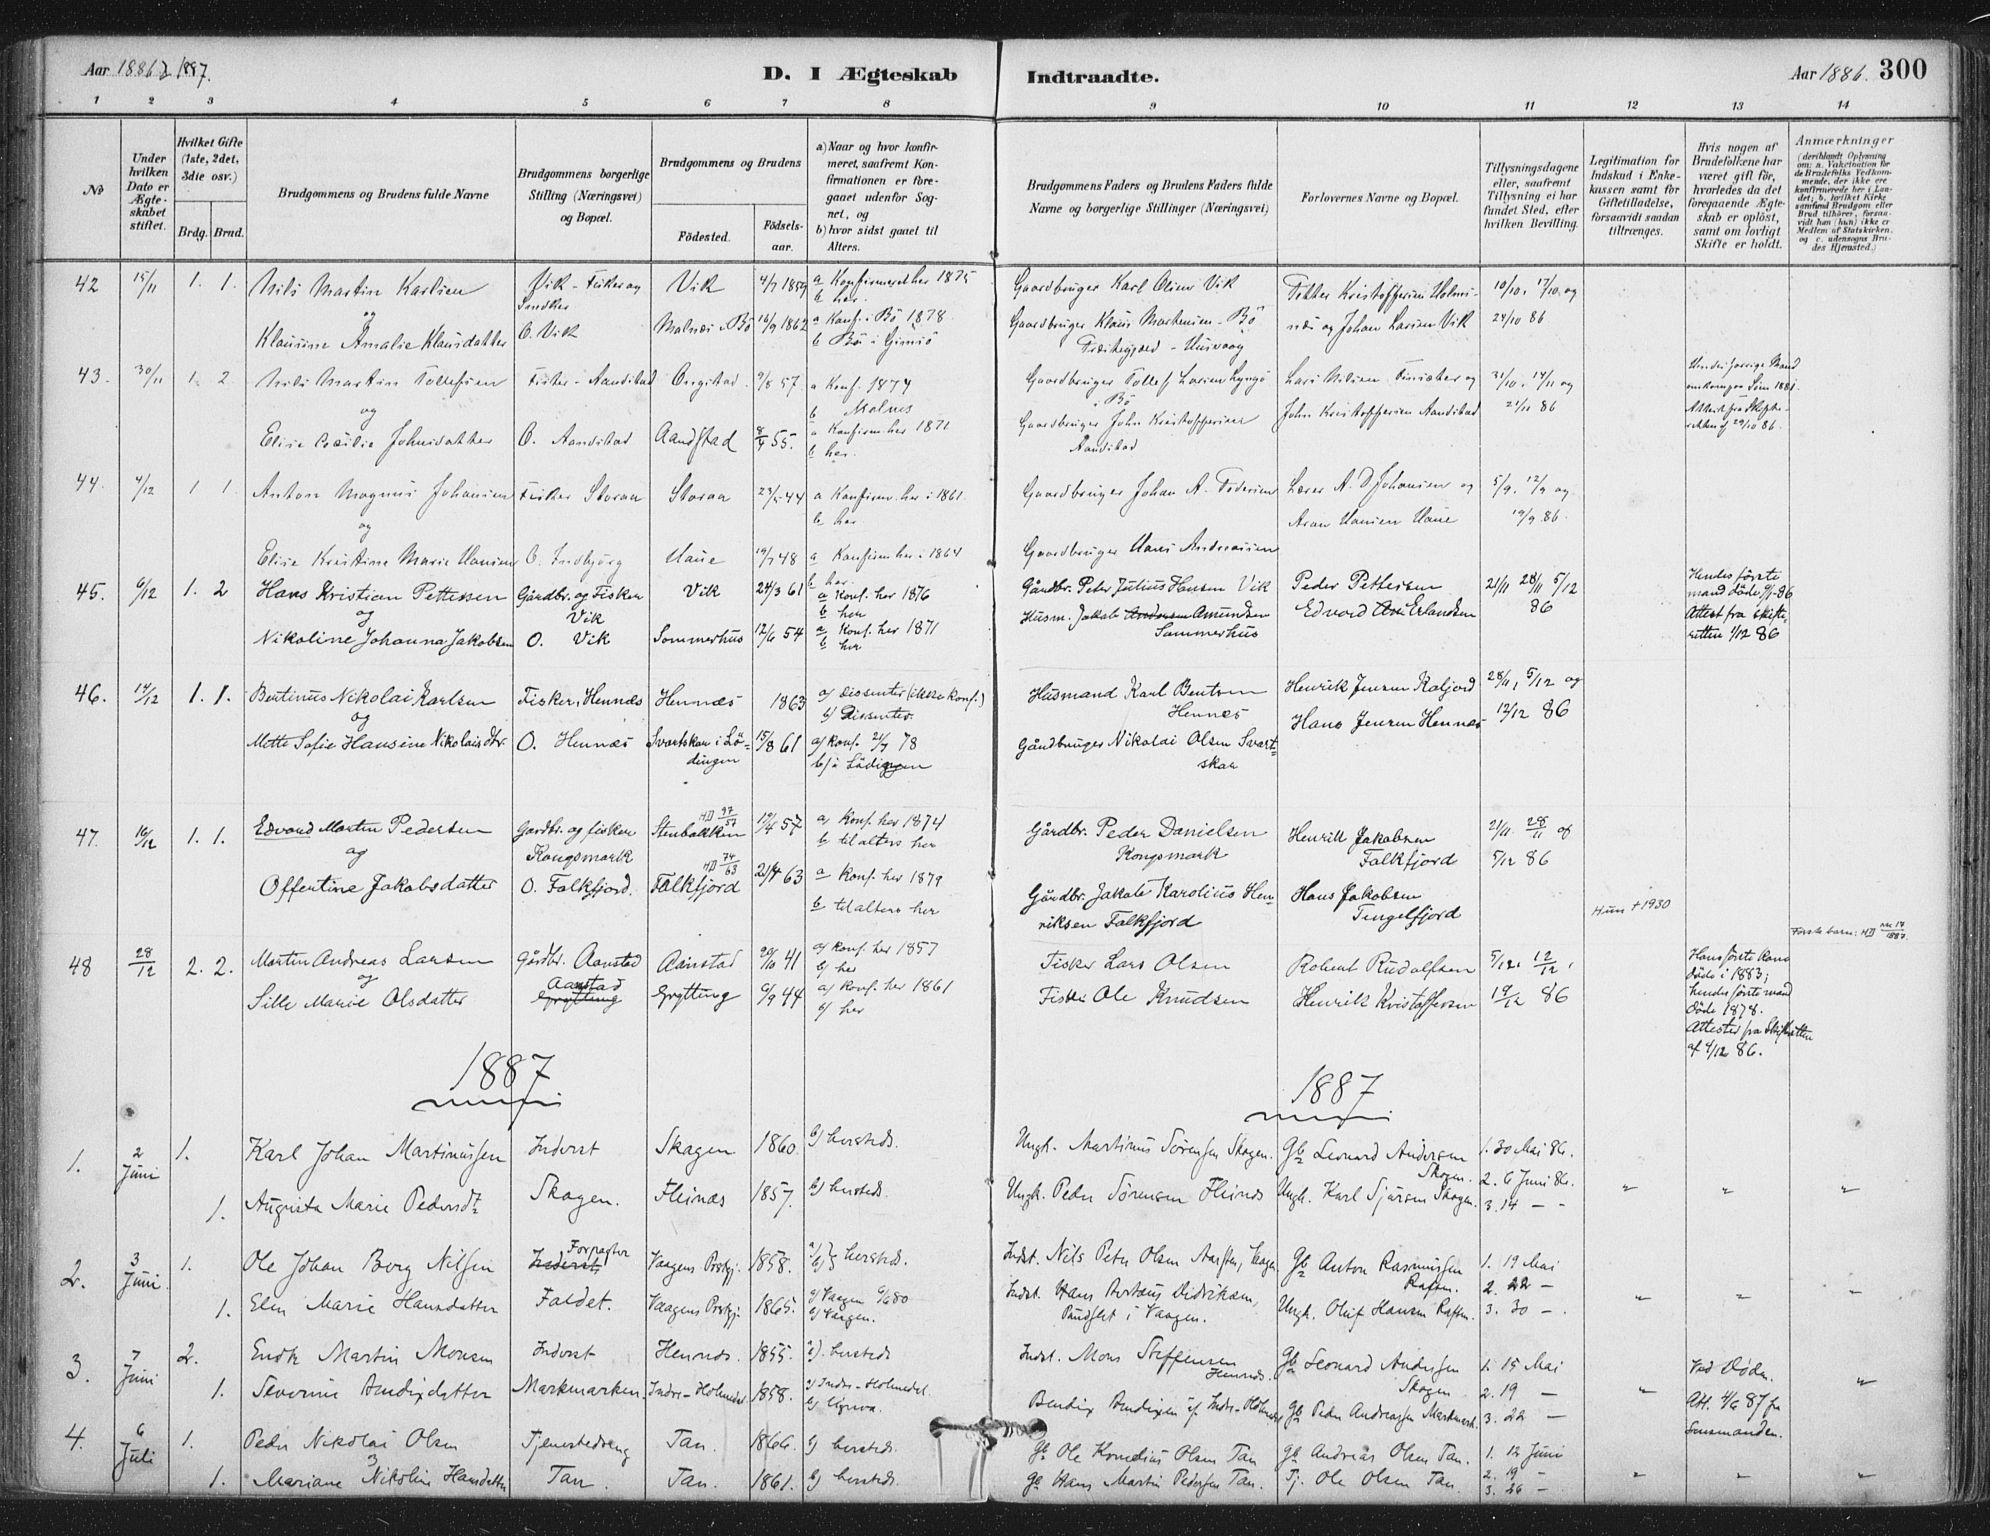 Aar 1886 & 1887.
D. I Ægteskab Indtraadte.
Aar 1886. 300
1 2 3 4 5 6 7 8 9 10 11 12 13 14
No
Under hvilken Dato er Ægteskabet stiftet.
Hvilket Gifte (1ste, 2det, 3die osv.)
Brdg. Brud.
Brudgommens og Brudens fulde Navne
Brudgommens borgerlige Stilling (Næringsvei) og Bopæl.
Brudgommens og Brudens
Fødested. Fødselsaar.
a) Naar og hvor konfirmeret, saafremt Konfirmationen er foregaaet udenfor Sognet, og
b) hvor sidst gaaet til Alters.
Brudgommens Faders og Brudens Faders fulde Navne og borgerlige Stillinger (Næringsvei)
Forlovernes Navne og Bopæl.
Tillysningsdagene eller, saafremt Tillysning ei har fundet Sted, efter hvilken Bevilling.
Legitimation for Indskud i Enkekassen samt for Giftetilladelse, forsaavidt saadan tiltrænges.
Hvis nogen af Brudefolkene har været gift før, hvorledes da det foregaaende Ægteskab er opløst, samt om lovligt Skifte er holdt.
Anmærkninger
(deriblandt Oplysning om: a. Vakcination for de Brudefolks Vedkommende, der ikke ere konfirmerede her i Landet; b. hvilket Kirkesamfund Brudgom eller Brud tilhører, forsaavidt han (hun) ikke er Medlem af Statskirken, og c. udensogns Brudes Hjemsted.)
42 15/11 1. 1. Nils Martin Karlsen Vik - Fisker og Vik 4/7 1859 a Konfirmeret her 1875 Gaardbruger Karl Olsen Vik 10/10, 17/10, og
og b her.
Klausine Amalie Klausdatter O. Vik Malnæs i Bö 16/9 1862 a Konf. i Bö 1878 Gaardbruger Klaus Martensen - Bö og Johan Larsen Vik 24/10 86
43. 30/11 1. 2 Nils Martin Tollefsen Fisker - Aandstad Ongstad 57 a Konf. 1874 Gaardbruger Tollef Larsen i Bö Lars Nilsen og 31/10, 14/11 og
og b Malnes
Elise Cecilie Johnsdatter O. Aandstad Aandstad 55. a Konfirm. her 1871 Gaardbruger John Kristoffersen Aandstad John Kristoffersen Aandstad 21/11 86
b her.
44. 4/12 1 1. Anton Magnus Johansen Fisker Storaa Storaa 44 a Konfirm. her i 1861. Gaardbruger Johan A. Lærer A. D. Johansen og 5/9, 12/9 og
og b her Hansen Haue 19/9 86.
Elise Kristine Marie Hansen O. Haue 48 a Konfirm. her i 1864 Gaardbruger Hans Andreassen
b her.
45. 6/12 1. 2 Hans Kristian Pettersen Gårdbr. og Fisker Vik Vik 24/3 61 a Konf. her 1876 Gårdbr. Peter Julius Hansen Vik Peder Pettersen 21/11 28/11 5/12 86 Hendes første mand döde -86
og b her
Nikoline Johanna Jakobsen O. Vik Sommerhus 12/6 54 a Konf. her 1871 Husm. Jakob Amundsen Sommerhus Edvard Erlandsen Attest fra skifteretten 1/12 86
b her
46. 14/12 1. 1. Bentinus Nikolai Karlsen Fisker, Hennæs Hennæs 1863 a) dissenter (ikke konf.) Husmand Karl Bentsen Hennes Henrik Jensen Kaljord 28/11, 5/12 og
og b) Dissenter.
Mette Sofie Hansine Nikolaisdtr. O. Hennæs Svartskar i Lödingen 15/8 61 a) konf. 78 Gårdbruger Nikolai Olsen Svartskar Hans Jensen Hennæs 12/12 86
b) i Lödingen
47. 19/12 1. 1. Edvard Martin Pedersen Gårdbr. og fisker Kongsmark Stenbakken 57 a) konf. her 1874 Gårdbr. Peder Danielsen Kongsmark Henrik Jakobsen Falkfjord 21/11 28/11 og
og b til alters her
Offentine Jakobsdatter O. Falkfjord. Falkfjord 63 a konf. her 1879 Gårdbr. Jakob Karolius Henriksen Falkfjord Hans Jakobsen Tengelfjord 5/12 86
b til alters her Hun † 1930
Første barn: MD no 14/1887.
48 28/12 2. 2. Martin Andreas Larsen Gårdbr. Aanstad Aanstad 20/10 41 a) konf. her 1857 Fisker Lars Olsen Robert Rudolfsen 5/12, 12/12, Hans første kone döde i 1883;
og b) her
Sille Marie Olsdatter Aanstad Grytting Grytting 6/9 44 a) konf. her 1861 Fisker Ole Knudsen Henrik Kristoffersen 19/12 86 hendes første mand döde 1878.
b) her Attester fra Skifteretten af 4/12 86.
1887 1887
1. 2 Juni 1. Karl Johan Martinussen Inderst Skagen 1860. b) hersteds. Ungk. Martinus Sörensen Skagen. Gb Leonard Andersen Skagen. 1. 30 Mai 86.
2. 6 Juni 86.
1. Augusta Marie Pedersdt Skagen. Fleinæs 1857. b) hersteds. Ungk. Peder Sörensen Fleinæs Ungk. Karl Skagen. 3. 14 — - „ „ „
2. 3 Juni 1. Ole Johan Berg Nilsen Inderst Forpagter Vaagens Præstgj. 1858. a) b) hersteds. Indst. Nils Peter Olsen Gb Anton Rasmussen Raften. 1. 19 Mai
2. 22 —
1. Elen Marie Hansdatter Faldet. Vaagens Præstgj. 1865. a) Vaagen b) Vaagen. Indst. Hans Didriksen, i Vaagen. Ungk. Oluf Hansen Raften. 3. 30 — „ „ „
3. 7 Juni 2. Endk Martin Monsen Inderst Hennæs. 1855. b) hersteds Indst. Mons Steffensen Hennæs. Gb Leonard Andersen Skagen. 1. 15 Mai Ved Døden.
1. Severine Bendixdatter Markmarken. Indre-Holmedal 1858. a) Indre-Holmedal. Bendix Bendixen Indre-Holmedal Gb Peder Andreassen Markmark 2. 19 — 3. 22 — „ Att. 4/6 87 fra Lensmanden. „
4. 6 Juli 1. Peder Nikolai Olsen Tjenestedreng Tan. 1866. b) hersteds. Gb Ole Kornelius Olsen Tan Gb Andreas Olsen Tan. 1. 12 Juni
1. Mariane Nikolin Hansdatter Tan. Tan. 1861. b) hersteds. Gb Hans Martin Pedersen Tan. Tj. Ole Olsen Tan. 2. 19 — 3. 26 — „ „ „